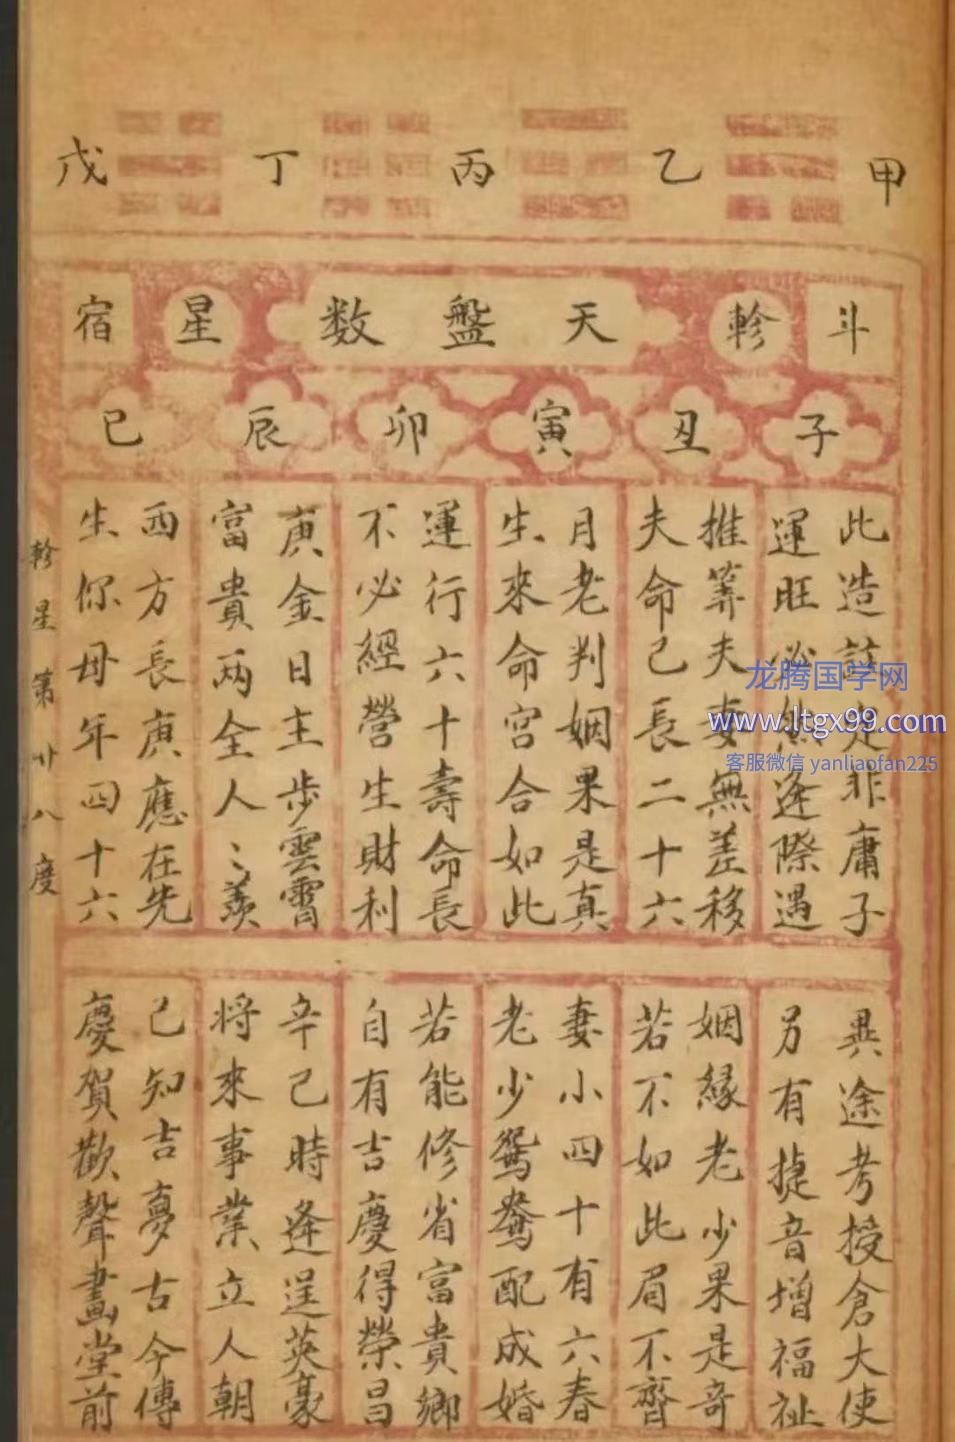 甲 乙 丙 丁 戊
斗 軫 天盤數 星 宿
子 丑 寅 卯 辰 巳
此造註定非庸子
運旺必然逢際遇
推筭夫妻無差移
夫命已長二十六
月老判姻果是真
生來命宮合如此
運行六十壽命長
不必經營生財利
庚金日主步雲霄
富貴兩全人〻羨
西方長庚應在先
生你母年四十六
異途考授倉大使
另有捷音增福祉
姻緣老少果是奇
若不如此眉不齊
妻小四十有六春
老少鴛鴦配成婚
若能修省富貴鄉
自有吉慶得榮昌
辛巳時逢逞英豪
將來事業立人朝
已知吉夢古今傳
慶賀歡聲畫堂前
軫星第廿八度
龙腾国学网
www.ltgx99.com
客服微信 yanliaofan225